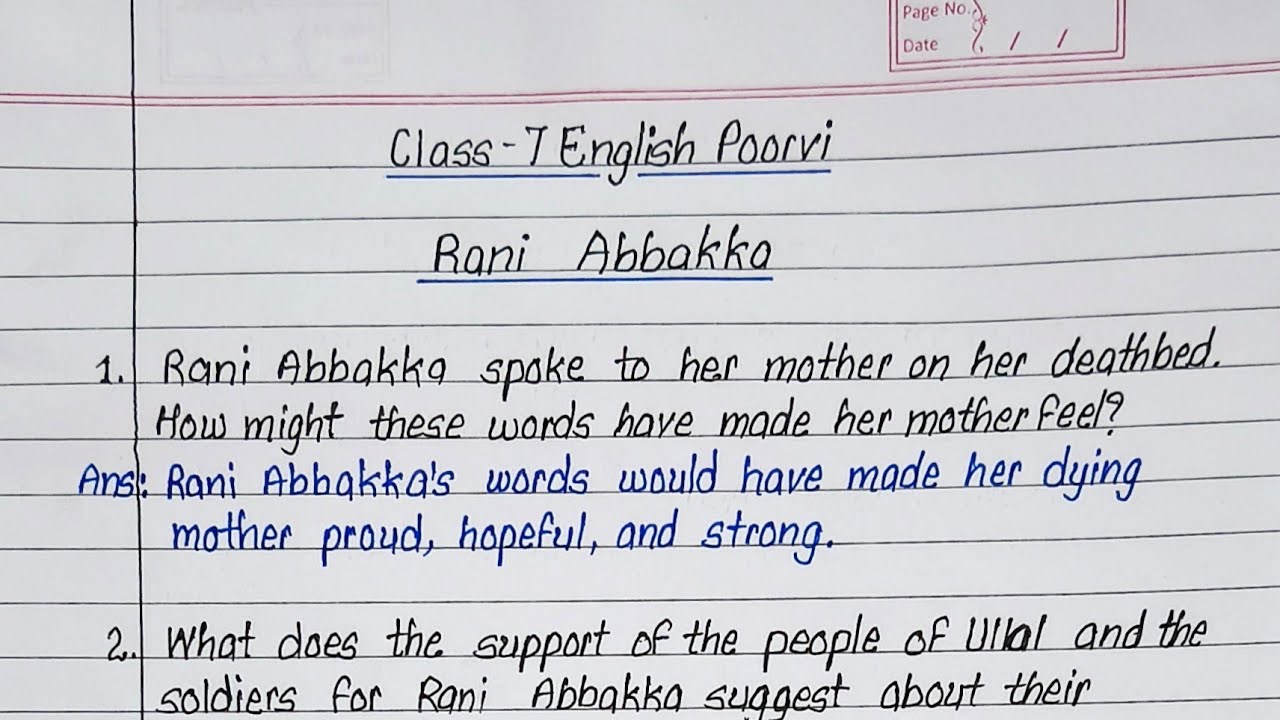 Page No.
Date / /
Class-7 English Poorvi
Rani Abbakka
1. Rani Abbakka spoke to her mother on her deathbed.
How might these words have made her mother feel?
Ans: Rani Abbakka's words would have made her dying
mother proud, hopeful, and strong.
2. What does the support of the people of Ullal and the
soldiers for Rani Abbakka suggest about their